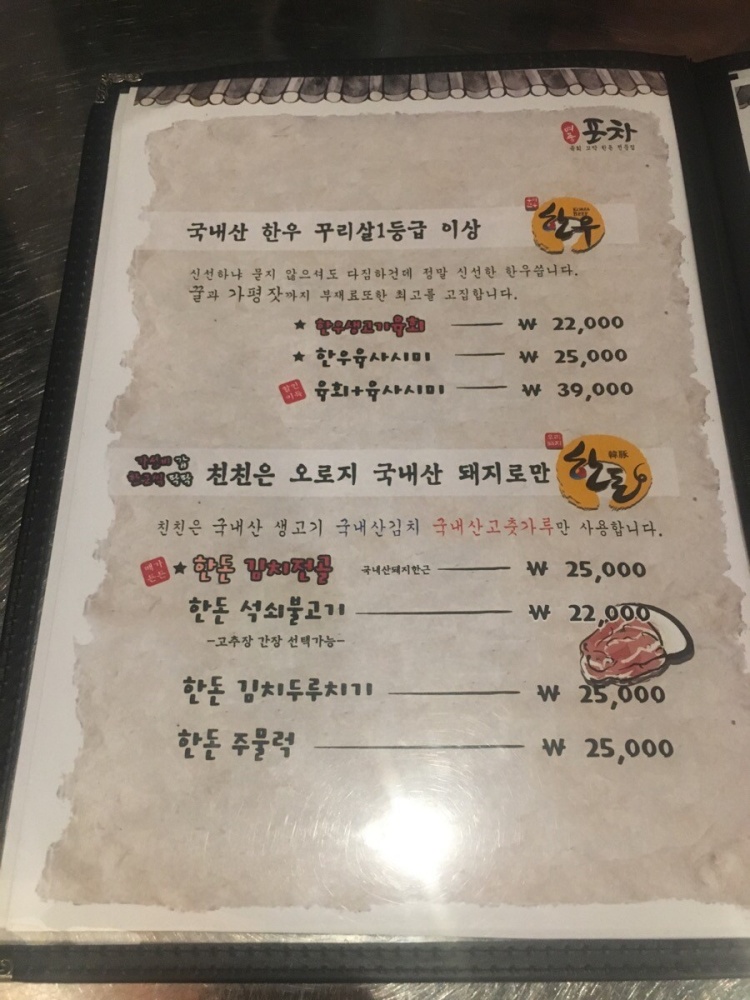 포차
국내산 한우 꾸리살1등급 이상
한우
신선하냐 묻지 않으셔도 다짐하건데 정말 신선한 한우씁니다.
꿀과 가평잣까지 부재료또한 최고를 고집합니다.
★ 한우생고기육회 ₩ 22,000
★ 한우육사시미 ₩ 25,000
육회+육사시미 ₩ 39,000
천천은 오로지 국내산 돼지로만
韓豚
한돈
천천은 국내산 생고기 국내산김치 국내산고춧가루만 사용합니다.
★ 한돈 김치전골 국내산돼지한근 ₩ 25,000
한돈 석쇠불고기 ₩ 22,000
-고추장 간장 선택가능-
한돈 김치두루치기 ₩ 25,000
한돈 주물럭 ₩ 25,000